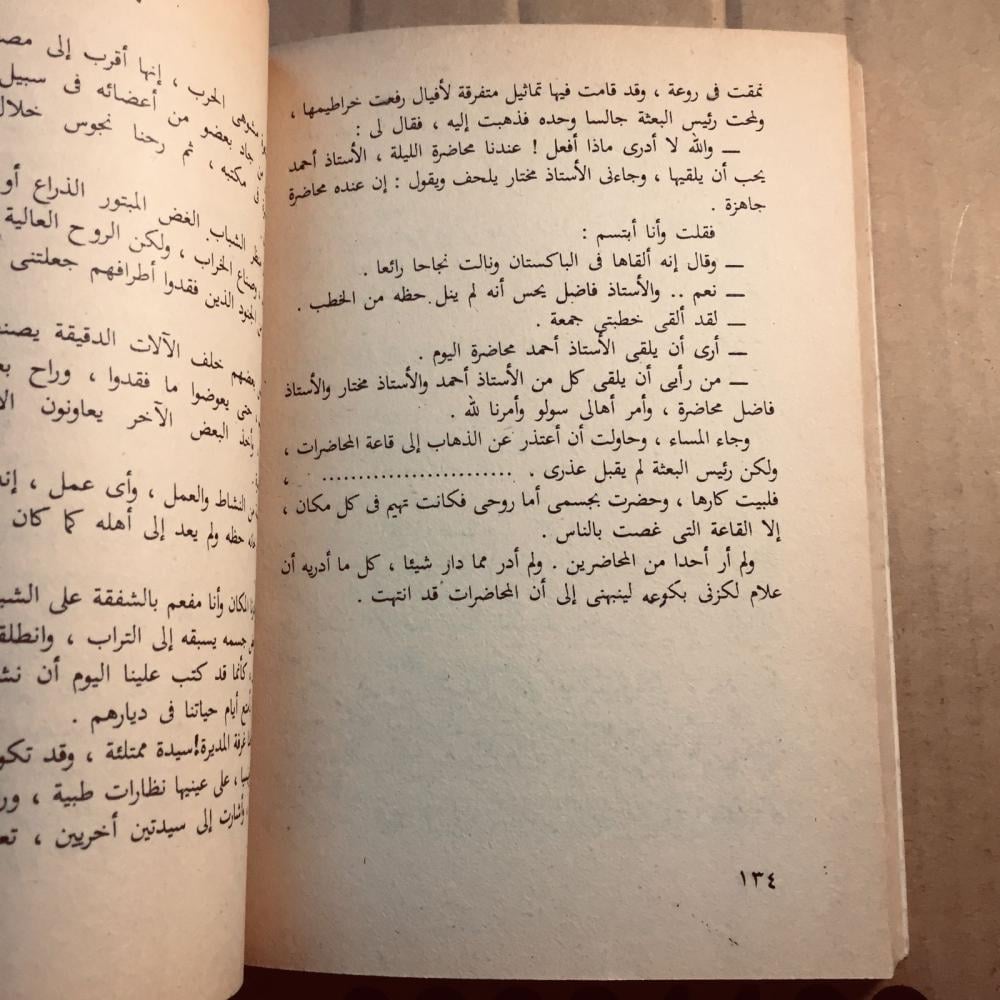 نمقت فى روعة ، وقد قامت فيها تماثيل متفرقة لأفيال رفعت خراطيمها ،
ولمحت رئيس البعثة جالسا وحده فذهبت إليه ، فقال لى :
— والله لا أدرى ماذا أفعل ! عندنا محاضرة الليلة ، الأستاذ أحمد
يحب أن يلقيها ، وجاءنى الأستاذ مختار يلحف ويقول : إن عنده محاضرة
جاهزة .
فقلت وأنا أبتسم :
— وقال إنه ألقاها فى الباكستان ونالت نجاحا رائعا .
— نعم .. والأستاذ فاضل يحس أنه لم ينل حظه من الخطب .
— لقد ألقى خطبتى جمعة .
— أرى أن يلقى الأستاذ أحمد محاضرة اليوم .
— من رأيى أن يلقى كل من الأستاذ أحمد والأستاذ مختار والأستاذ
فاضل محاضرة ، وأمر أهالى سولو وأمرنا لله .
وجاء المساء ، وحاولت أن أعتذر عن الذهاب إلى قاعة المحاضرات ،
ولكن رئيس البعثة لم يقبل عذرى . ........................ ،
فلبيت كارها ، وحضرت بجسمى أما روحى فكانت تهيم فى كل مكان ،
إلا القاعة التى غصت بالناس .
ولم أر أحدا من المحاضرين . ولم أدر مما دار شيئا ، كل ما أدريه أن
علام لكزنى بكوعه لينبهنى إلى أن المحاضرات قد انتهت .
١٣٤
الحرب ، إنها أقرب إلى
جاد بعضو من أعضائه فى سبيل
مكتبه ، ثم رحنا نجوس خلال
الشباب الغض المبتور الذراع أو
وصناع الخراب ، ولكن الروح العالية
الجنود الذين فقدوا أطرافهم جعلتنى
بعضهم خلف الآلات الدقيقة
حتى يعوضوا ما فقدوا ، وراح
وأخذ البعض الآخر يعاونون
من النشاط والعمل ، وأى عمل ،
حظه ولم يعد إلى أهله كما كان
المكان وأنا مفعم بالشفقة على
جسمه يسبقه إلى التراب ،
كأنما قد كتب علينا اليوم أن
أيام حياتنا فى ديارهم .
غرفة المديرة ! سيدة ممتلئة ، وقد
على عينيها نظارات طبية ،
وأشارت إلى سيدتين أخريين ،